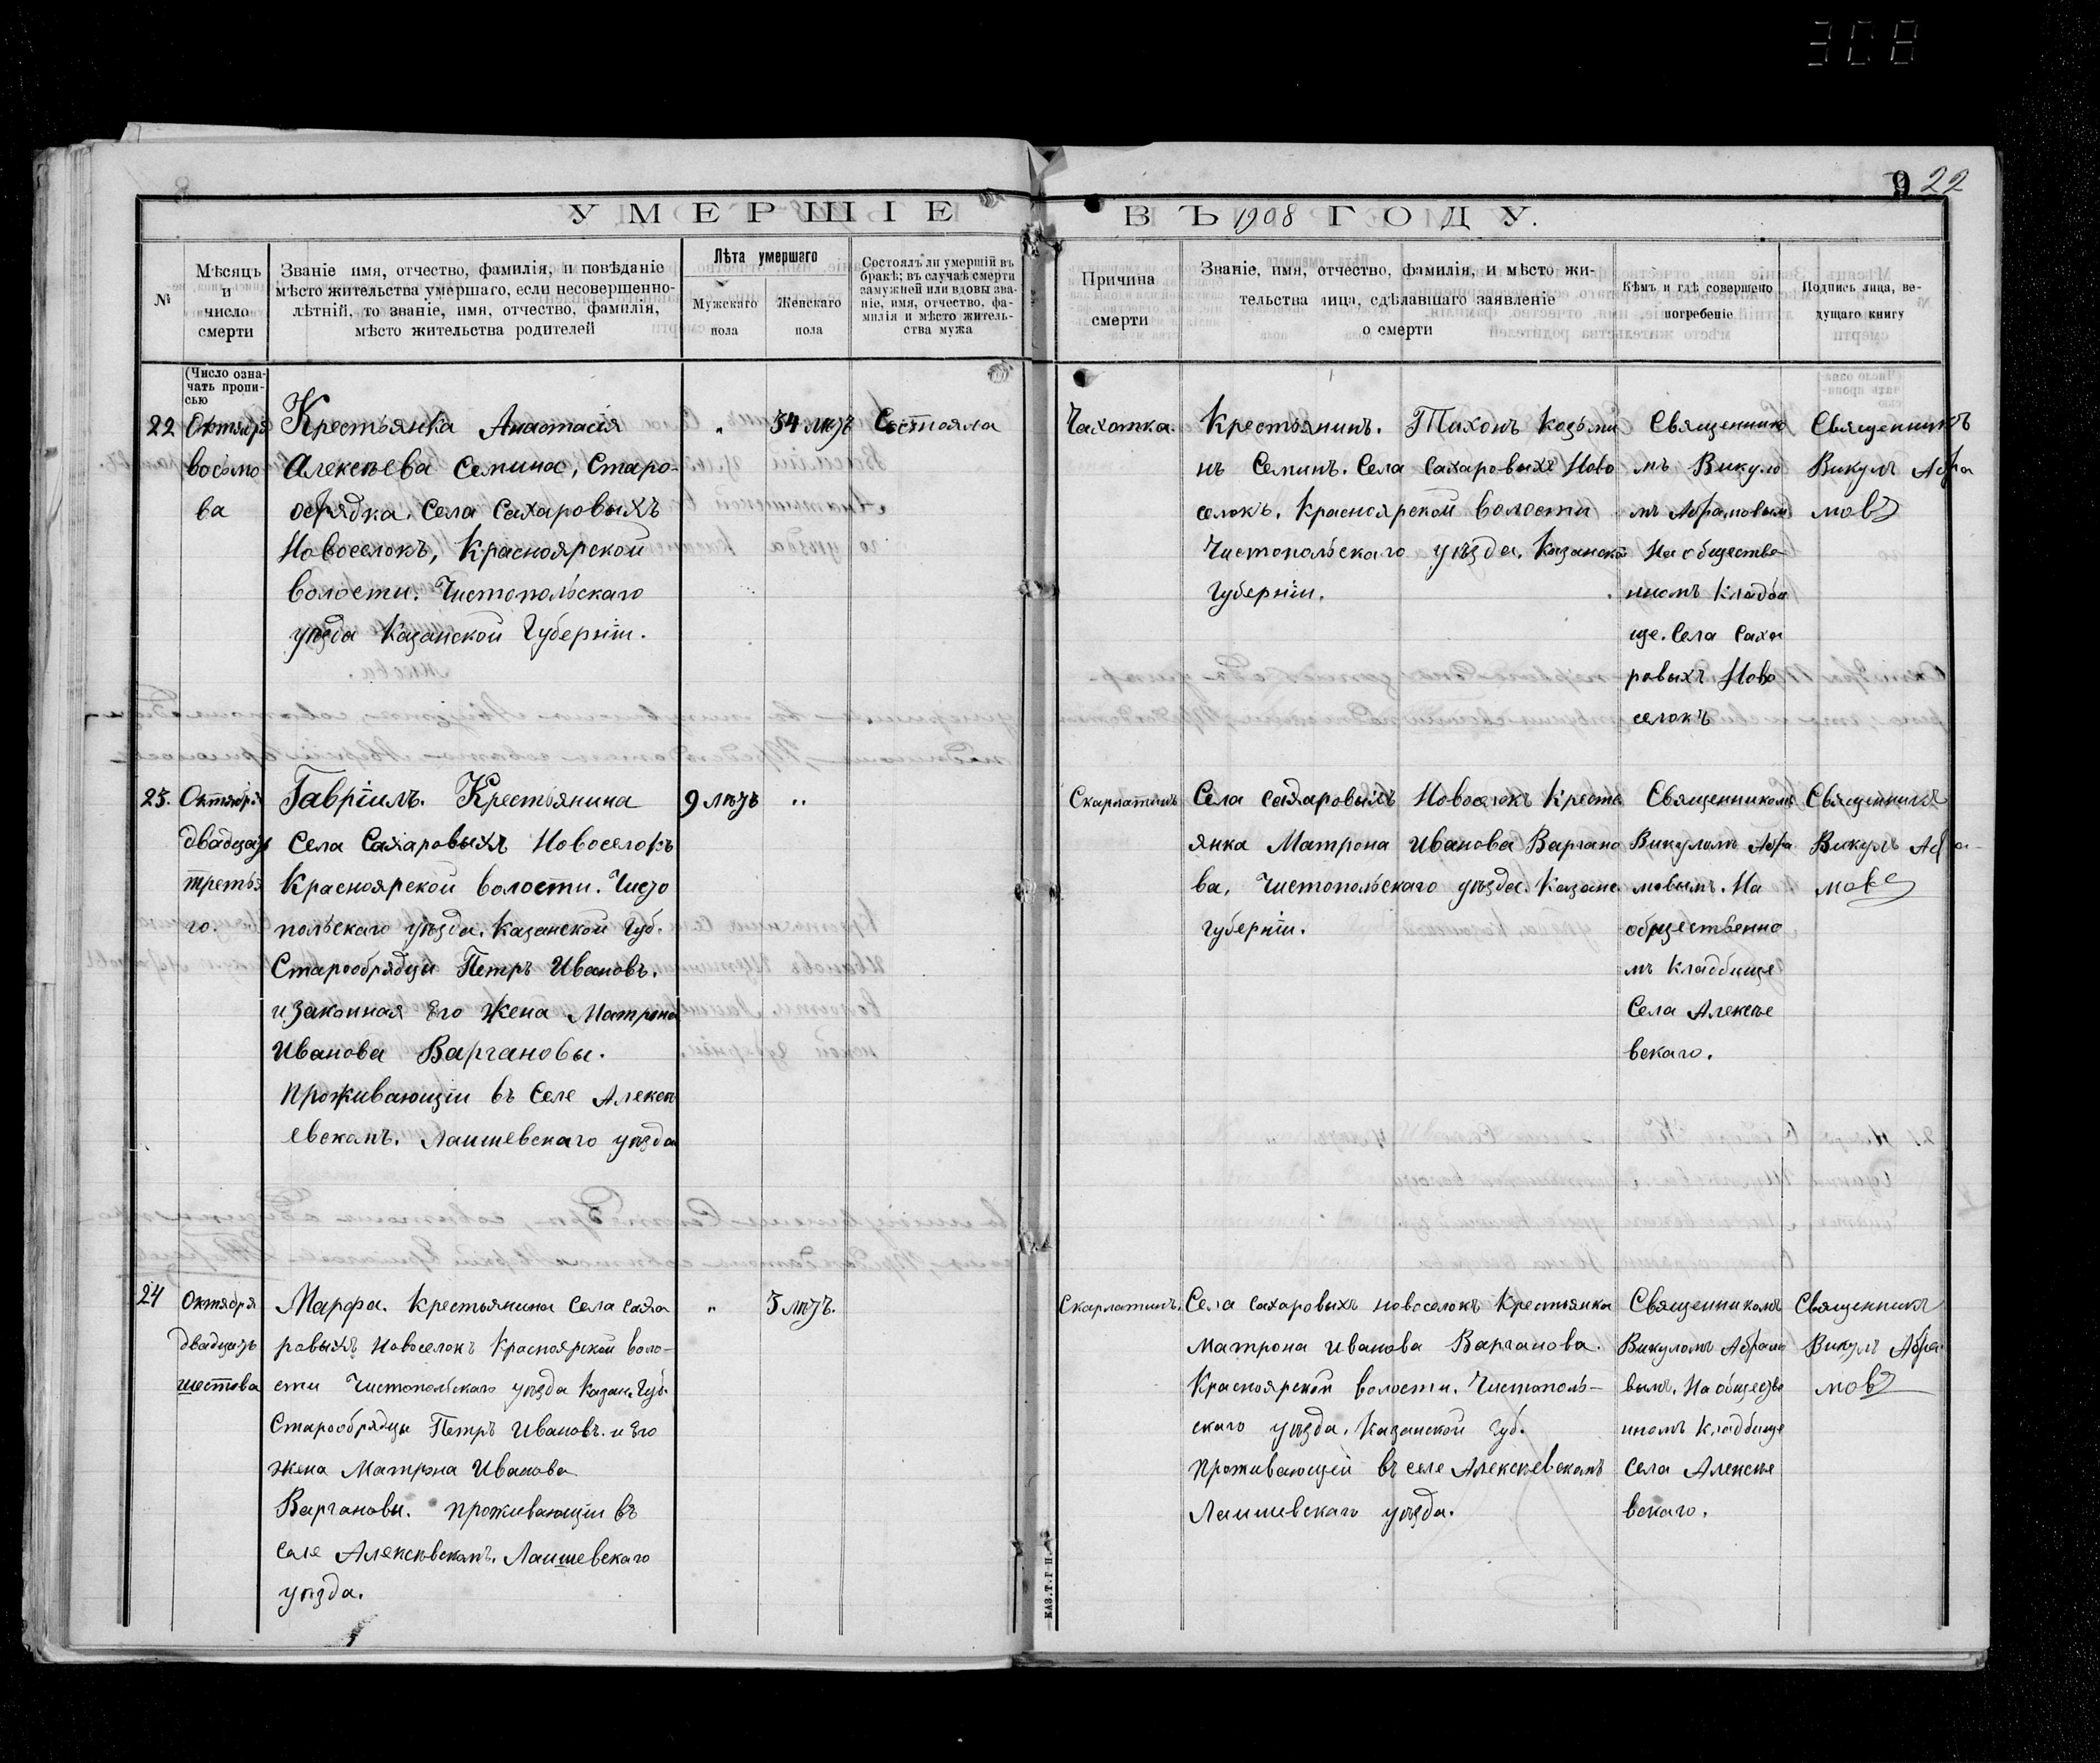 308
9 22
УМЕРШІЕ ВЪ 1908 ГОДУ.
№
Мѣсяцъ
и
число
смерти
Званіе имя, отчество, фамилія, и повѣданіе
мѣсто жительства умершаго, если несовершенно-
лѣтній, то званіе, имя, отчество, фамилія,
мѣсто жительства родителей
Лѣта умершаго
Мужскаго
пола
Женскаго
пола
Состоялъ ли умершій въ
бракѣ; въ случаѣ смерти
замужней или вдовы зва-
ніе, имя, отчество, фа-
милія и мѣсто житель-
ства мужа
Причина
смерти
Званіе, имя, отчество, фамилія, и мѣсто жи-
тельства лица, сдѣлавшаго заявленіе
о смерти
Кѣмъ и гдѣ совершено
погребеніе
Подпись лица, ве-
дущаго книгу
(Число озна-
чать пропи-
сью
22
Октября
восьмо
ва
Крестьянка Анастасія
Алексѣева Семина, Старо-
обрядка, Села Сахаровыхъ
Новоселокъ, Красноярской
волости. Чистопольскаго
уѣзда Казанской Губерніи.
"
54 лѣтъ
Состояла
Чахотка.
Крестьянинъ. Тихонъ Козьми
нъ Семинъ. Села Сахаровыхъ Ново
селокъ. Красноярской волости
Чистопольскаго уѣзда. Казанской
Губерніи.
Священнико
мъ Викуло
мъ Абрамовым
На обществе
нномъ Кладби
ще. Села Саха
ровыхъ Ново
селокъ
Священникъ
Викулъ Абра
мовъ
23.
Октября
двадцать
третья
го.
Гавріилъ. Крестьянина
Села Сахаровыхъ Новоселокъ
Красноярской волости. Чисто
польскаго уѣзда. Казанской Губ.
Старообрядцы Петръ Ивановъ.
и Законная Его Жена Матрона
Иванова Варгановы.
Проживающіи въ Селе Алексѣ
евскомъ. Лаишевскаго уѣзда
9 лѣтъ
"
Скарлатинъ
Села Сахаровыхъ Новоселокъ Кресть
янка Матрона ИвановаВаргано
ва, Чистопольскаго уѣзда. Казанс.
Губерніи.
Священникомъ
Викуломъ Абра
мовымъ. На
общественно
мъ Кладбище
Села Алексѣе
вскаго.
Священникъ
Викулъ Абра-
мовъ
24
Октября
двадцать
шестова
Марфа. Крестьянина Села Саха
ровыхъ Новоселокъ Красноярской воло-
сти Чистопольскаго уѣзда Казан. Губ.
Старообрядцы Петръ Ивановъ. и Его
жена Матрона Иванова
Варгановы. Проживающіи въ
селе Алексѣевскомъ. Лаишевскаго
уѣзда.
"
3 лѣтъ.
Скарлатинъ.
Села Сахаровыхъ Новоселокъ Крестьянка
Матрона Иванова Варганова.
Красноярской волости. Чистополь-
скаго уѣзда. Казанской Губ.
Проживающей въ селе Алексѣевскомъ
Лаишевскаго уѣзда.
Священникомъ
Викуломъ Абрамо
вымъ. На обществе
нномъ Кладбище
Села Алексѣе
вскаго.
Священникъ
Викулъ Абра-
мовъ
КАЗ. Т. Г. П.